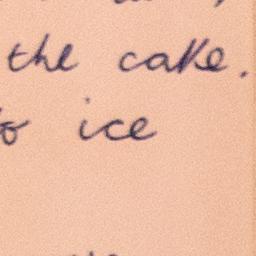 the cake.
to ice